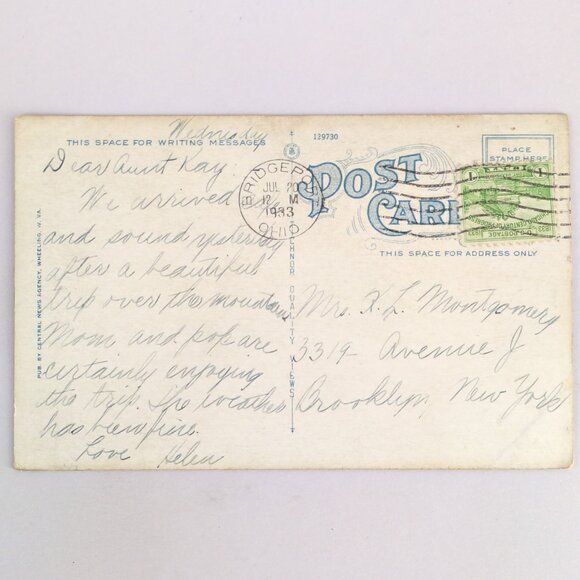 Wednesday
THIS SPACE FOR WRITING MESSAGES
Dear Aunt Kay
We arrived
and sound yesterday
after a beautiful
trip over the mountains
Mom and pop are
certainly enjoying
the trip. The weather
has been fine.
Love Helen
PUB. BY CENTRAL NEWS AGENCY, WHEELING, W. VA.
TICHNOR QUALITY VIEWS
129730
BRIDGEPORT
JUL 20
12 M
1933
OHIO
POST CARD
PLACE
STAMP HERE
1 1
U.S. POSTAGE
THIS SPACE FOR ADDRESS ONLY
Mrs. K. L. Montgomery
3319 Avenue J
Brooklyn, New York